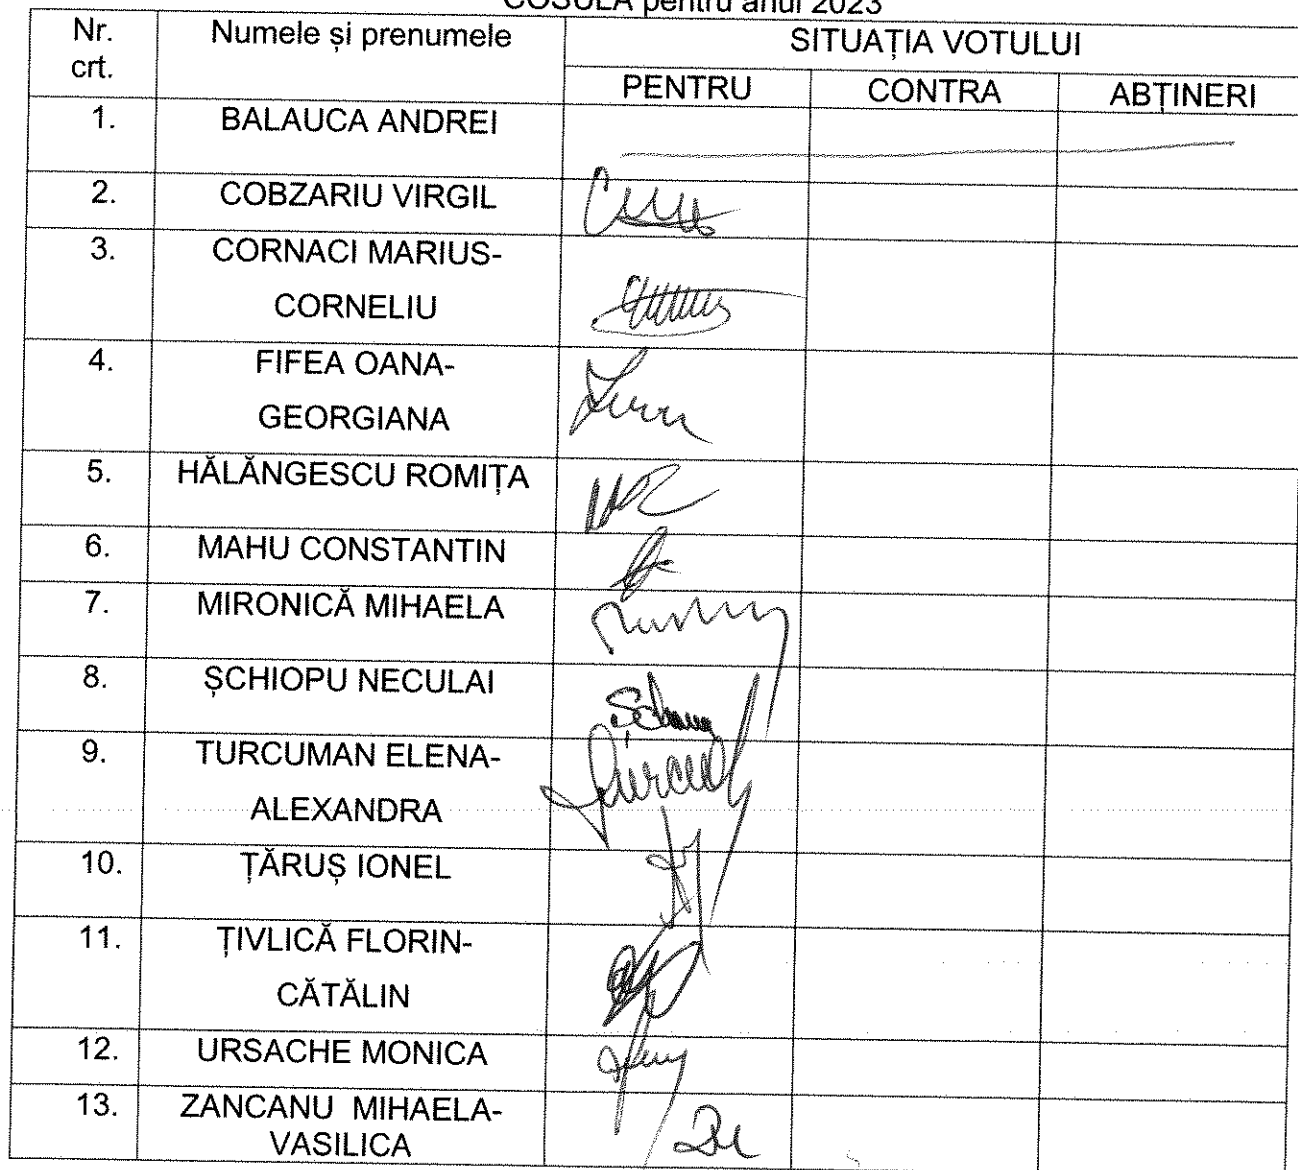 COȘULA pentru anul 2023
Nr. crt. Numele și prenumele SITUAȚIA VOTULUI
PENTRU CONTRA ABȚINERI
1. BALAUCA ANDREI
2. COBZARIU VIRGIL
3. CORNACI MARIUS-
CORNELIU
4. FIFEA OANA-
GEORGIANA
5. HĂLĂNGESCU ROMIȚA
6. MAHU CONSTANTIN
7. MIRONICĂ MIHAELA
8. ȘCHIOPU NECULAI
9. TURCUMAN ELENA-
ALEXANDRA
10. ȚĂRUȘ IONEL
11. ȚIVLICĂ FLORIN-
CĂTĂLIN
12. URSACHE MONICA
13. ZANCANU MIHAELA-
VASILICA